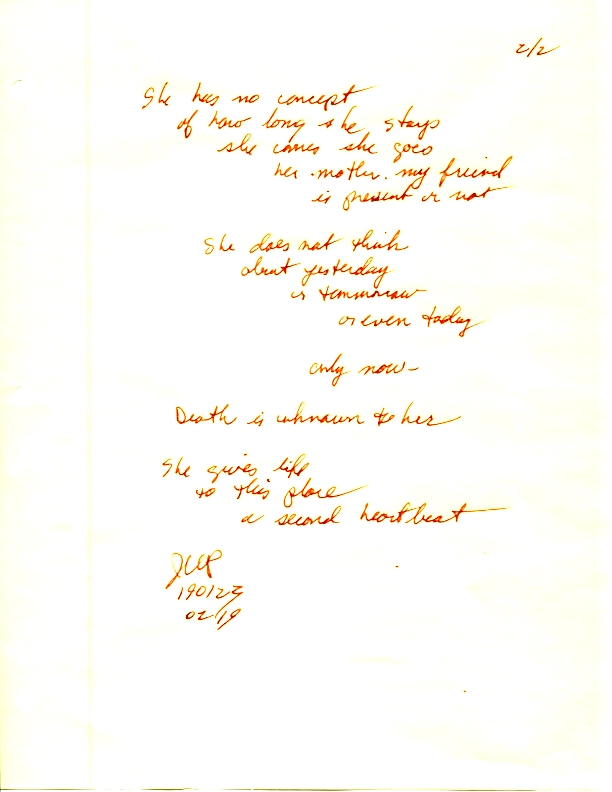 2/2
She has no concept
of how long she stays
she comes she goes
her mother. my friend
is present or not
She does not think
about yesterday
or tommorow
or even today
only now-
Death is unknown to her
She gives life
to this place
a second heartbeat
190123
02/19